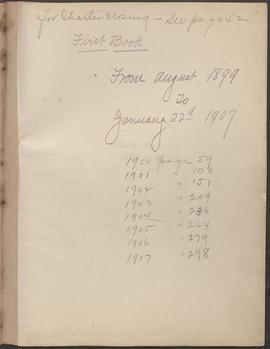 For Charter Closing - See page 52
First Book
From August 1899
To
January 22d 1907
1900 page 59
1901 " 103
1902 " 151
1903 " 209
1904 " 236
1905 " 264
1906 " 279
1907 " 298